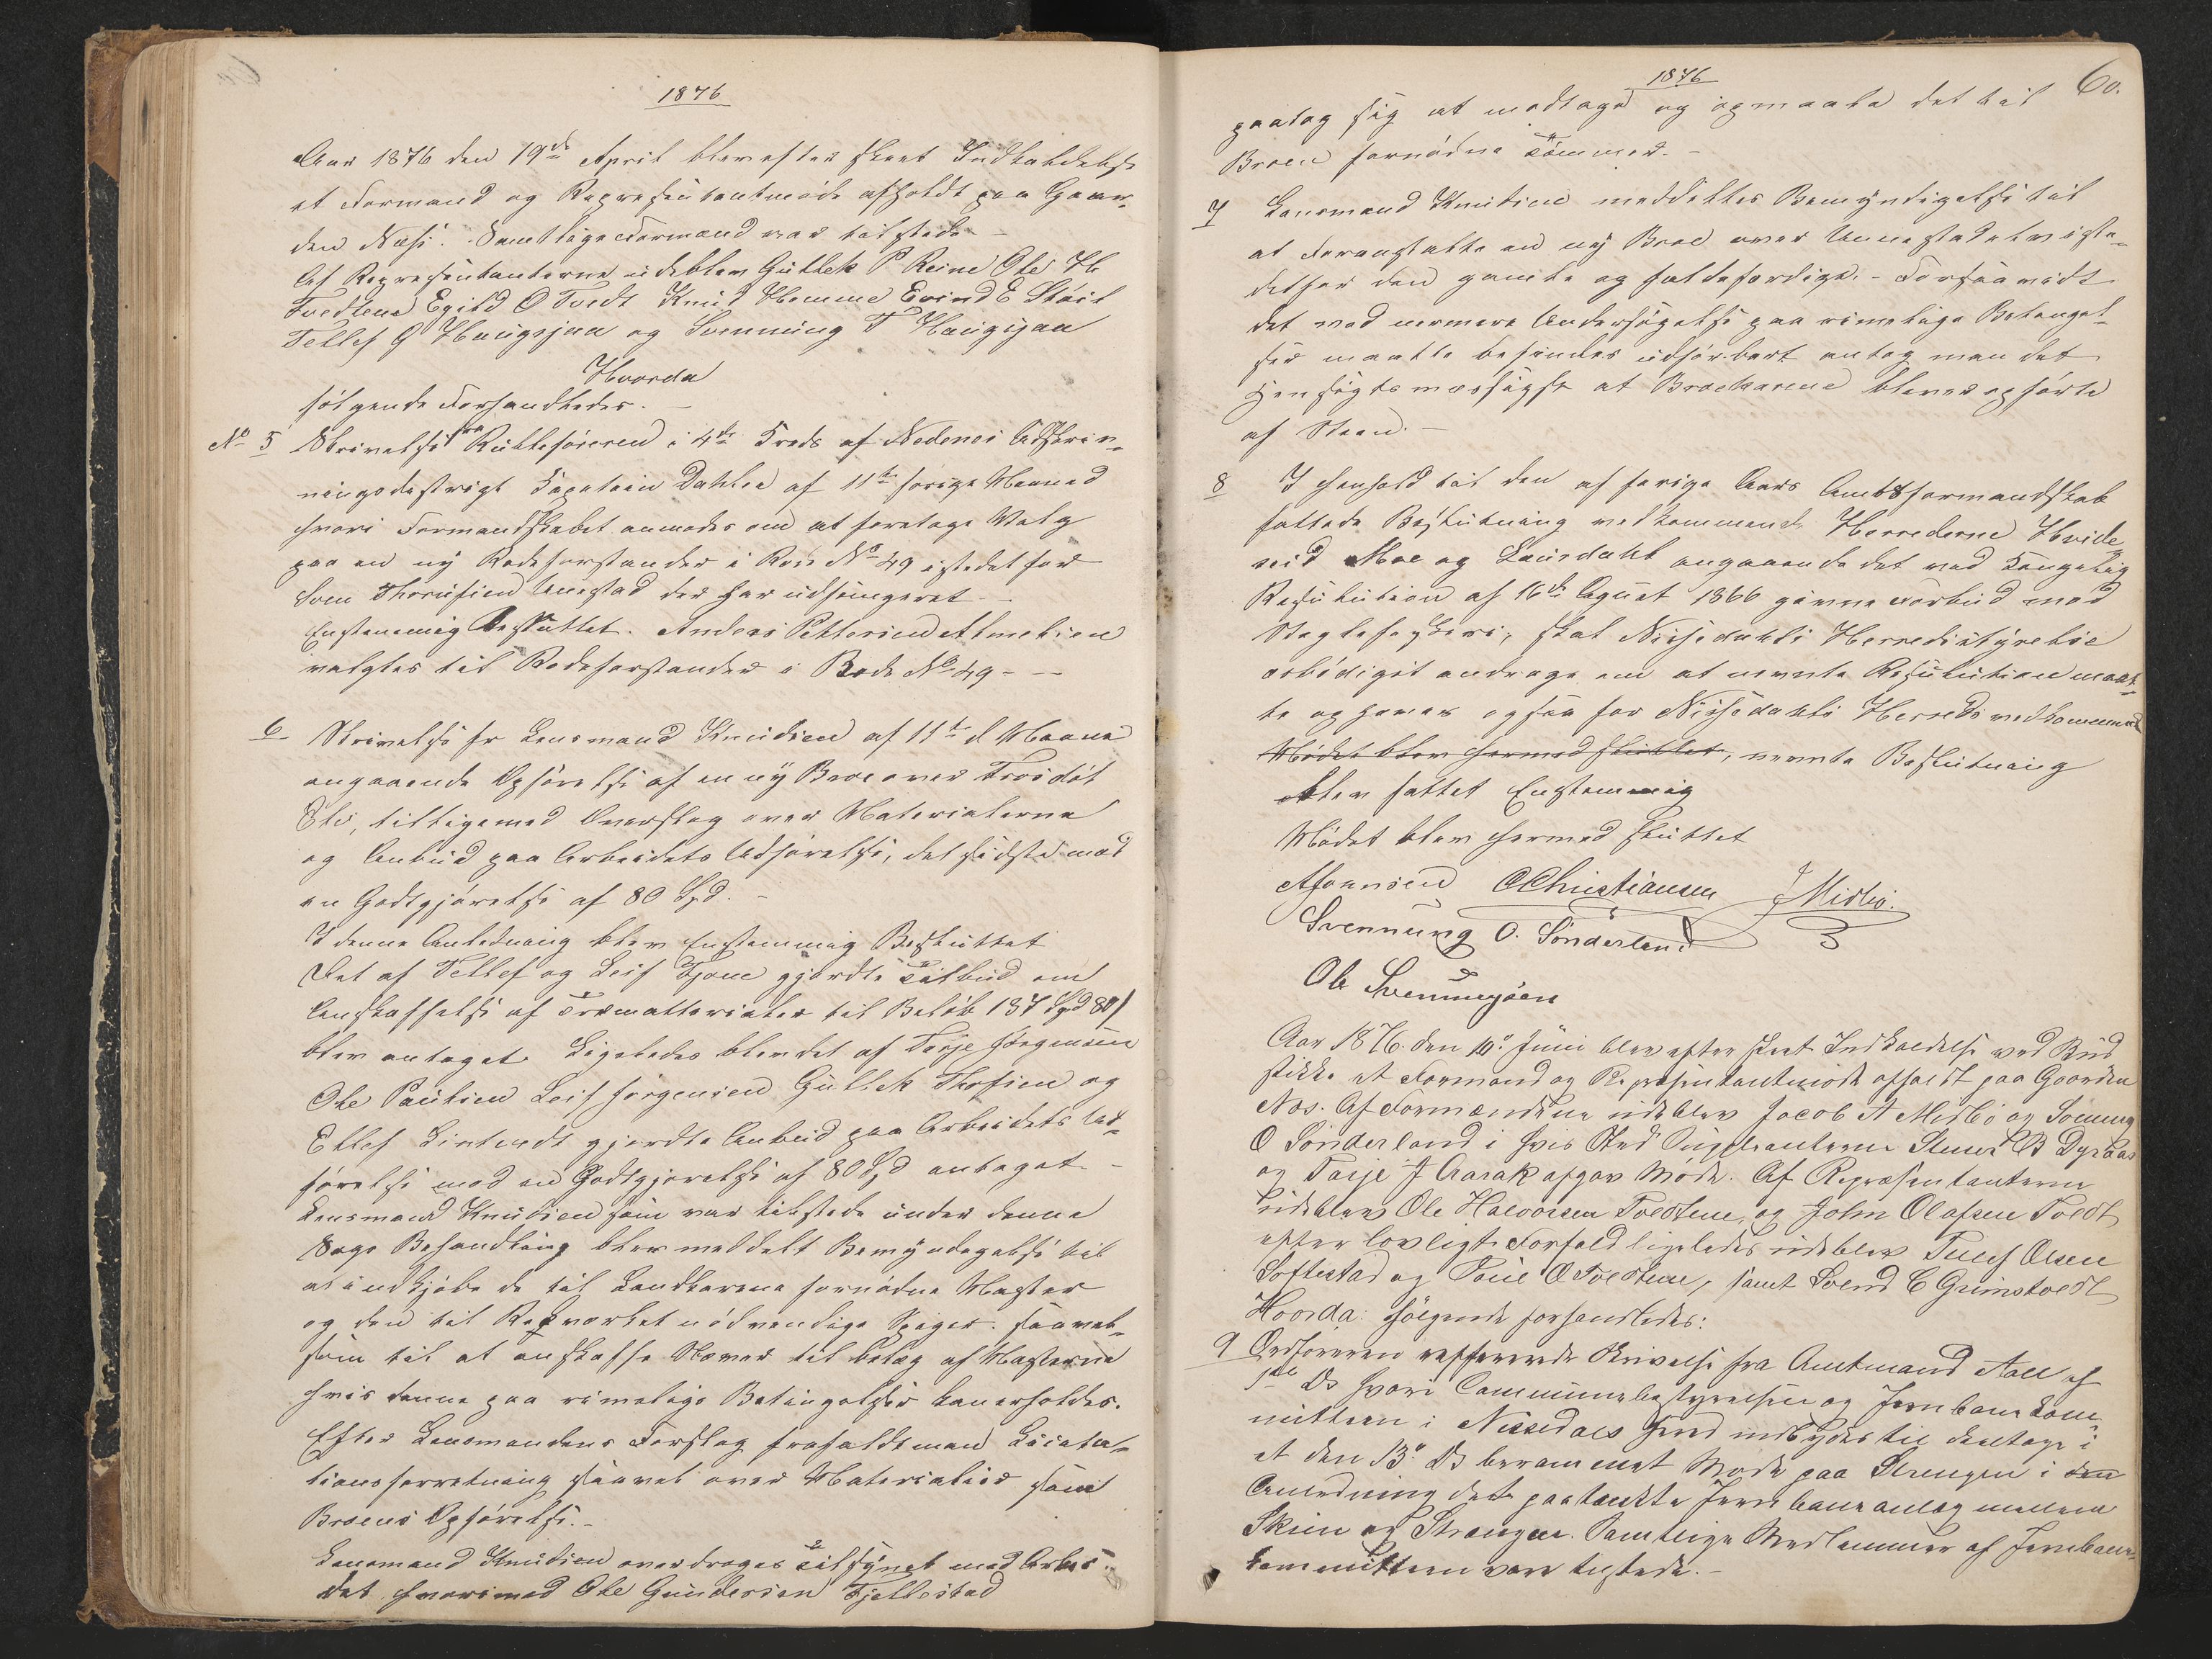 1876
Aar 1876 den 19de April blev efter skeet Indkaldelse
et Formand og Repræsentantmøde afholdt paa Gaar-
den Næs. Samtlige Formænd var tilstede
Af Repræsentanterne udeblev Gullek P Reine Ole H
Tvedtene Egild O Tvedt Knud Homme Eivind E Støil
Tellef G Haugsjaa og Svenning T Haugsjaa
Hvorda
følgende Forhandledes.
No 5 Skrivelse fra Rulleføreren i 4de Kreds af Nedenes Udskriv-
ningsdistrigt Kaptain Dahlee af 11te forige Maaned
hvori Formandskabet anmodes om at foretage Valg
paa en ny Rodeforstander i Rode No 49 istedet for
Sven Thorsisen Unestad der har udfungeret
Enstemmig Besluttet. Anders Pettersen
valgtes til Rodeforstander i Rode No 49 -
6 Skrivelse fr Lensmand Knudsen af 11te d Maane
angaaende Opførelse af en ny Broe over
Elv, tilligemed Overslag over Materialerne
og Anbud paa Arbeidets Udførelse, det sidste mod
en Godtgjørelse af 80 Spd. -
I denne Anledning blev Enstemmig Besluttet
Det af Tellef og Leif Tjone gjordte Tilbud om
Anskaffelse af Træmatterialer til Beløb 137 Spd 80
blev antaget Ligeledes blev det af Torje Jørgensen
Ole Paulsen Leif Jørgensen Gullek Thofsen og
Ellef gjordte Anbud paa Arbeidets Ud-
førelse mod en Godtgjørelse af 80 Spd antaget -
Lensmand Knudsen som var tilstede under denne
Sags Behandling blev meddelt Bemyndigelse til
at indkjøbe de til Landkarene fornødne Master
og den til Rækværket nødvendige Spiger. saavel-
som til at anskaffe Næver til belæg af Masterne
hvis denne paa rimelige Betingelser kan erholdes.
Efter Lensmandens Forslag frafaldt man Licita-
tionsforretning saavel over Materialier som
Broens Opførelse. -
Lensmand Knudsen overdroges Tilsynet med Arbei-
det hvorimod Ole Gundersen Fjellestad
1876
60.
paatog sig at modtage og opmaale det til
Broen fornødne Tømmer. -
7 Lensmand Knudsen meddeltes Bemyndigelse til
at Foranstalte en ny Broe over
detfor den gamle og faldefærdige. - Forsaavidt
det ved nermere Undersøgelse paa rimelige Betingel-
ser maatte befindes udførbart antog man det
hensigtsmæssigst at Broekarene blever opførte
af Steen. -
8 I Henhold til den af forige Aars Amtsformandskab
fattede Beslutning vedkommende Herrederne Hvide-
seid Moe og Laurdahl angaaende det ved Kongelig
Resulution af 16de Agust 1866 givne Forbud mod
skal Nissedahls Herredsstyrelse
ærbødigst andrage om at nevnte Resulution maat-
te ophæves ogsaa for Nissedahls Herreds vedkommende
Mødet blev hermed sluttet, nevnte Beslutning
blev fattet Enstemmig
Mødet blev hermed sluttet
CChristiansen J Midbø.
Svennung O. Sønderland
Ole Svenningsen
Aar 1876. den 10de Juni blev efter skeet Indkaldelse ved Bud
stikke et Formand og Repræsentantmøde afholdt paa Gaarden
Næs. Af Formændene udeblev Jacob A Midbø og Svennung
O Sønderland i hvis Sted Supleanterne Stener B Dyraas
og Torje J Aasak afgav Møde. Af Repræsentanterne
udeblev Ole Halvorsen Tvedtene, og John Olafsen Tvedt
efter lovligt Forfald ligeledes udeblev Tellef Olsen
Softestad og Poul O Tvedtene, samt Svend C Grimstvedt
Hvorda følgende forhandledes:
9 Ordføreren refererede Skrivelse fra Amtmand Aall af
1ste Ds hvori Communebestyrelsen og Jernbanekom-
mitteen i Nissedals Hered indbydes til deeltage i
et den 13de Ds berammet Møde paa Strengen i den
Anledning det paatænkte Jernbaneanlæg mellem
Skien og Strengen. Samtlige Medlemmer af Jernbane-
kommitteen vare tilstede. -